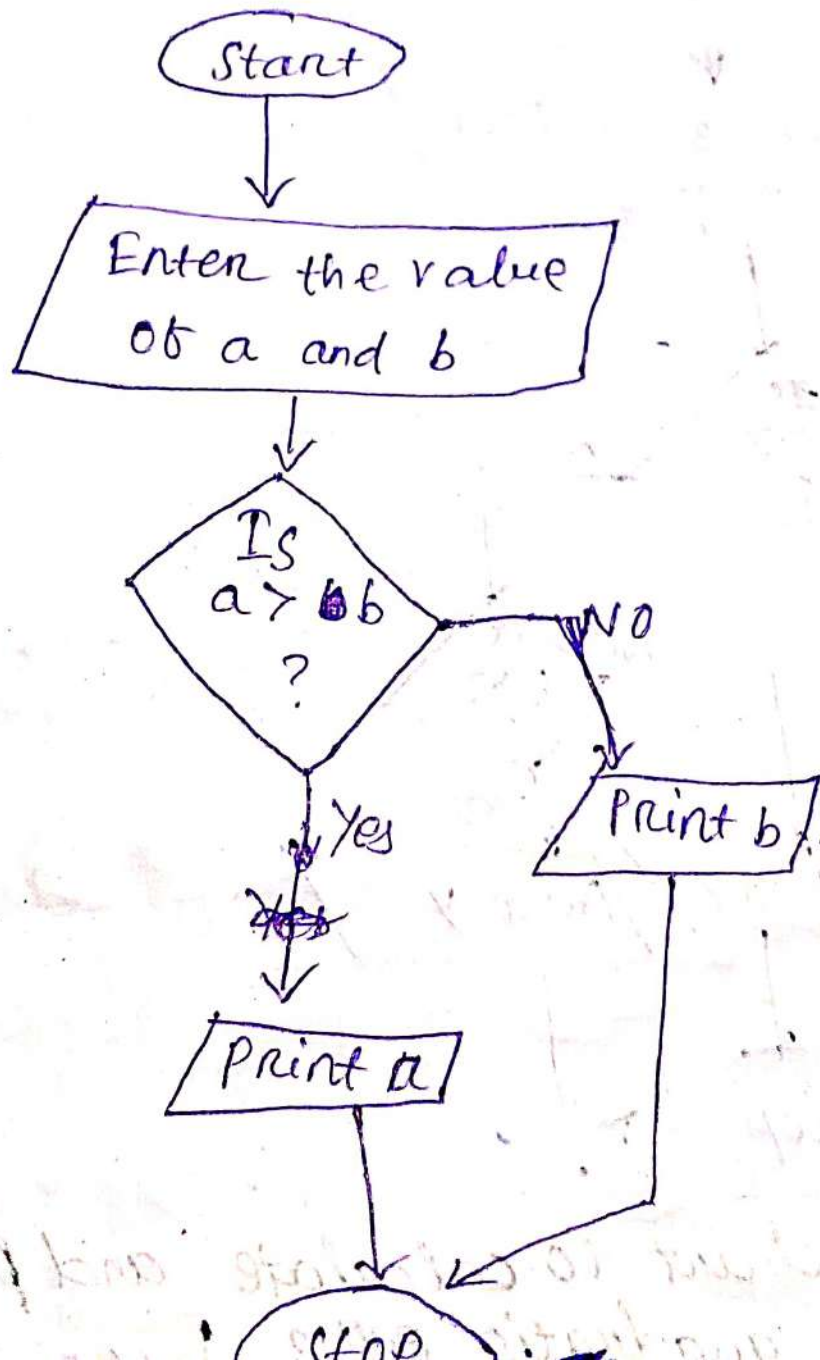 Start
Enter the value
of a and b
Is
a > b
?
NO
Yes
Print b
Print a
Stop